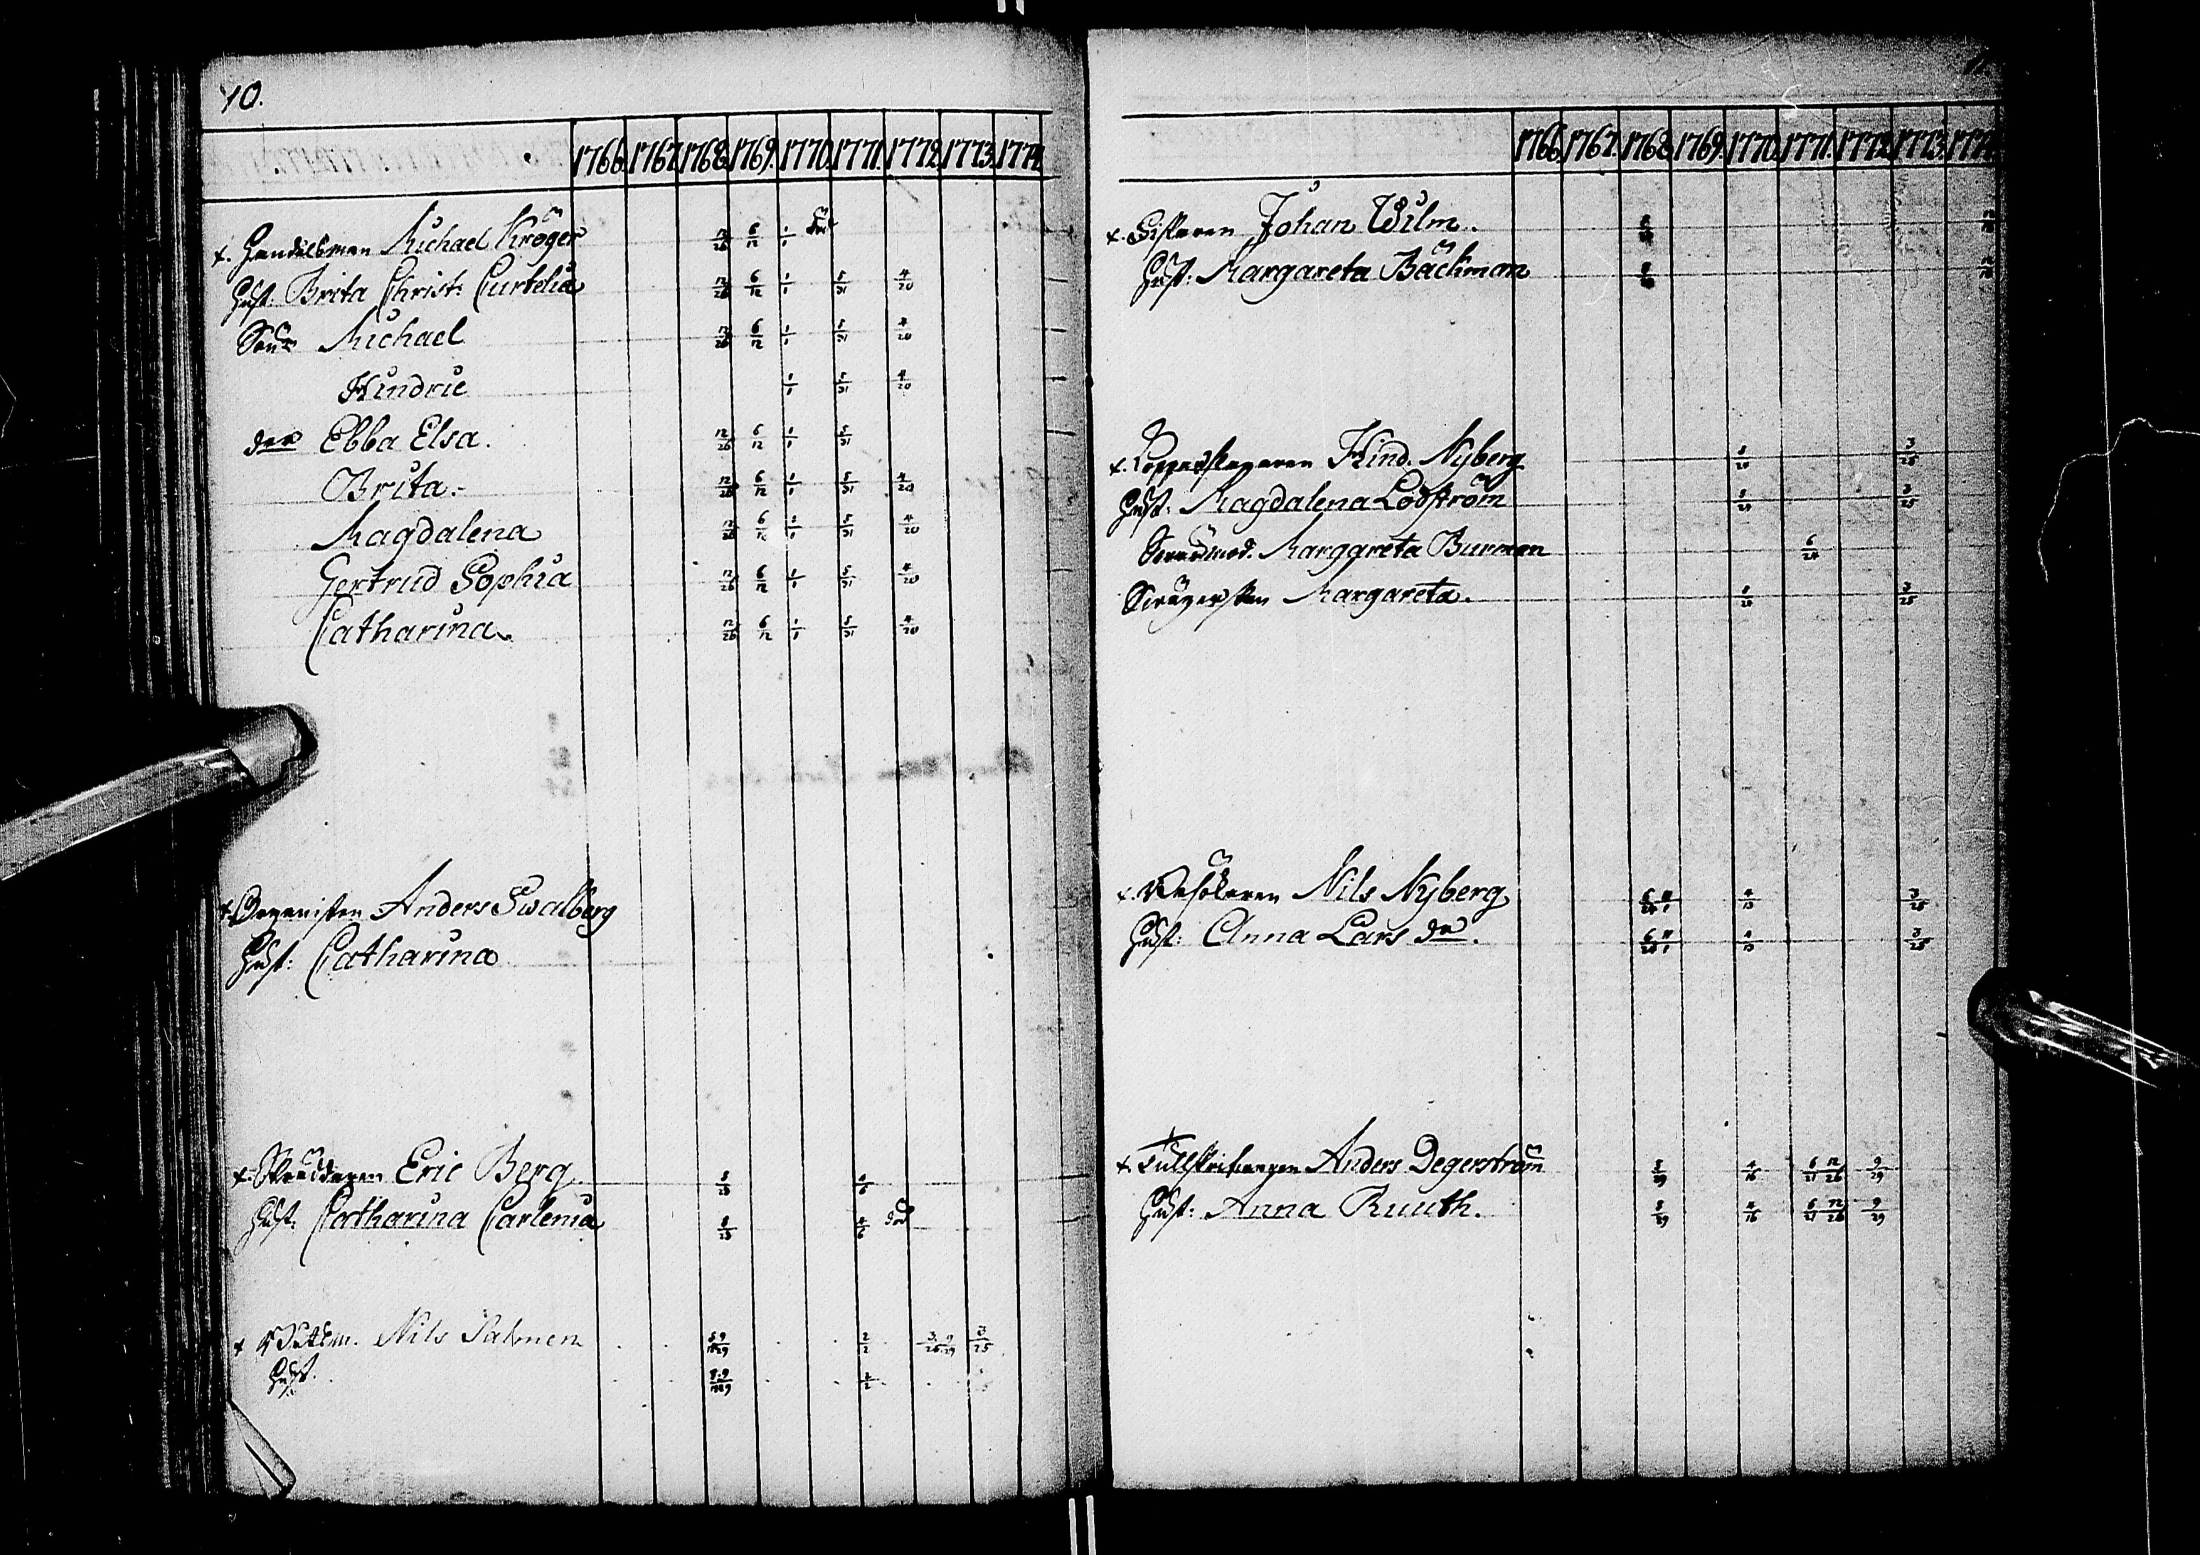 10.
1766. 1767. 1768. 1769. 1770. 1771. 1772. 1773. 1774.
+. Handelsman Michael Kröger 12/26 6/12 1/1 död
Hust: Brita Christ: Curtelia 12/26 6/12 1/1 5/31 4/20
Son Michael 12/26 6/12 1/1 5/31 4/20
Hindric 1/1 5/31 4/20
der Ebba Elsa. 12/26 6/12 1/1 5/31
Brita. 12/26 6/12 1/1 5/31 4/20
Magdalena 12/26 6/12 1/1 5/31 4/20
Gertrud Sophia 12/26 6/12 1/1 5/31 4/20
Catharina. 12/26 6/12 1/1 5/31 4/20
+. Organisten Anders Swalberg
Hust: Catharina
+. Eric Berg 4/6
Hust: Catharina Carlenia 4/6 död
+ Nils Salmen 2/2 3/25
Hust. 2/2
1766. 1767. 1768. 1769. 1770. 1771. 1772. 1773. 1774.
+. Fiskaren Johan Wilm.
Hust: Margareta Bäckman
+. Kopparslagaren Hind. Nyberg 3/25
Hust: Magdalena Lodström 3/25
Swärmod. Margareta Burman 6/24
Margareta. 3/25
+. Nils Nyberg 4/13 3/25
Hust: Anna Lars dr. 4/13 3/25
+. Anders Degerström 8/29 4/16 6/21 12/26 9/29
Hust: Anna Ruuth. 8/29 4/16 6/21 12/26 9/29